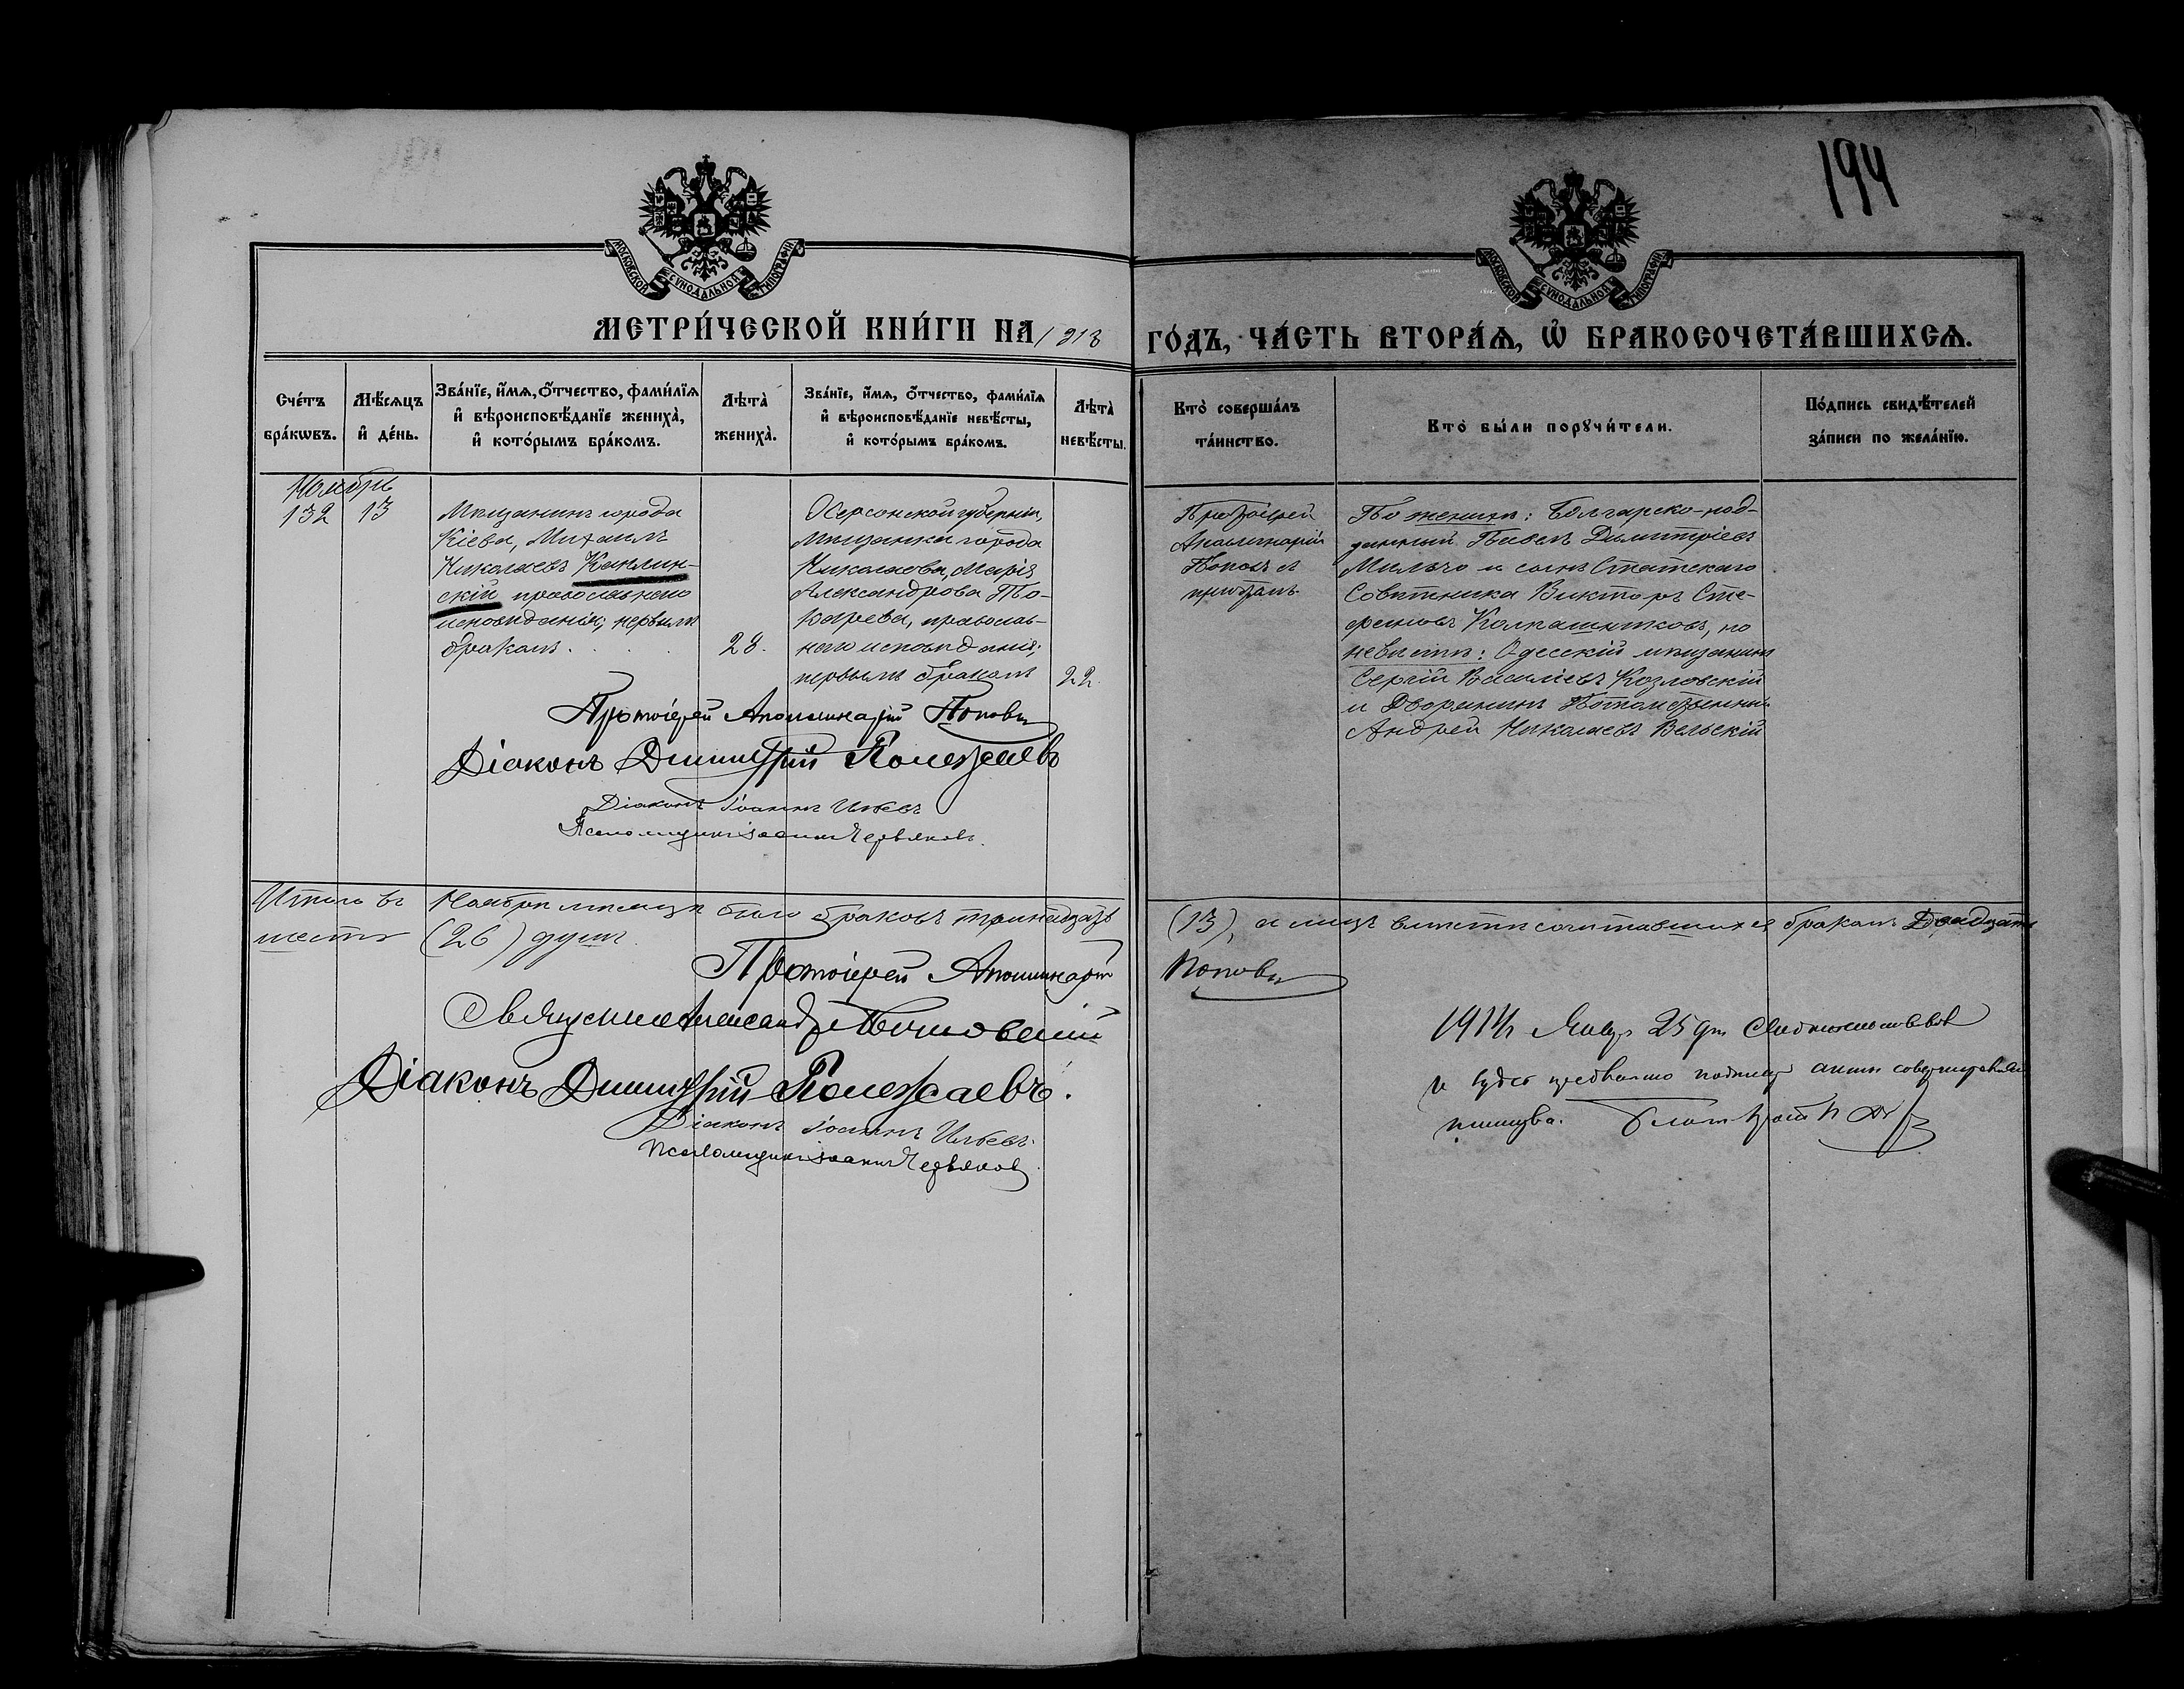 194
МОСКОВСКОЙ СУНОДАЛЬНОЙ ТИПОГРАФІИ
МОСКОВСКОЙ СУНОДАЛЬНОЙ ТИПОГРАФІИ
МЕТРИ́ЧЕСКОЙ КНИ́ГИ НА 1913 ГО́ДЪ, ЧА́СТЬ ВТОРА́Ѧ, Ѡ҆ БРАКОСОЧЕТА́ВШИХСѦ.
Сче́тъ
бра́кѡвъ.
Мѣ́сѧцъ
и҆ де́нь.
Зва́нїе, и҆́мѧ, ѻ҆́тчество, фами́лїѧ
и҆ вѣроисповѣ́данїе жениха̀,
и҆ кото́рымъ бра́комъ.
Лѣта̀
жениха̀.
Зва́нїе, и҆́мѧ, ѻ҆́тчество, фами́лїѧ
и҆ вѣроисповѣ́данїе невѣ́сты,
и҆ кото́рымъ бра́комъ.
Лѣта̀
невѣ́сты.
Кто̀ соверша́лъ
та́инство.
Кто̀ бы́ли порꙋчи́тели.
По́дпись свидѣ́телей
за́писи по жела́нїю.
Ноябрь
132
13
Мѣщанинъ города
Кіева, Михаилъ
Николаевъ Каклин-
скій православнаго
исповѣданія, первымъ
бракомъ.
28.
Херсонской губерніи,
мѣщанка города
Николаева, Марія
Александрова То-
карева, православ-
наго исповѣданія,
первымъ бракомъ
22.
Протоіерей
Аполлинарій
Поповъ съ
причтомъ.
По женихѣ: Болгарско-под-
данный Павелъ Димитріевъ
Мильчо и сынъ Статскаго
Совѣтника Викторъ Сте-
фановъ Колпашниковъ, по
невѣстѣ: Одесскій мѣщанинъ
Сергій Васильевъ Козловскій
и Дворянинъ Потомственный
Андрей Николаевъ Вельскій
Протоіерей Аполлинарій Поповъ
Діаконъ Димитрій Полежаевъ
Діаконъ Іоаннъ
Псаломщикъ Іоаннъ Червяковъ.
Итого въ Ноябрѣ мѣсяцѣ было браковъ тринадцать (13), а лицъ вмѣстѣ сочетавшихся бракомъ Двадцать
шесть (26) душъ.
Протоіерей Аполлинарій Поповъ
Священникъ Александръ
Діаконъ Димитрій Полежаевъ.
Діаконъ Іоаннъ
Псаломщикъ Іоаннъ Червяковъ
1914 г Янв. 25 дня